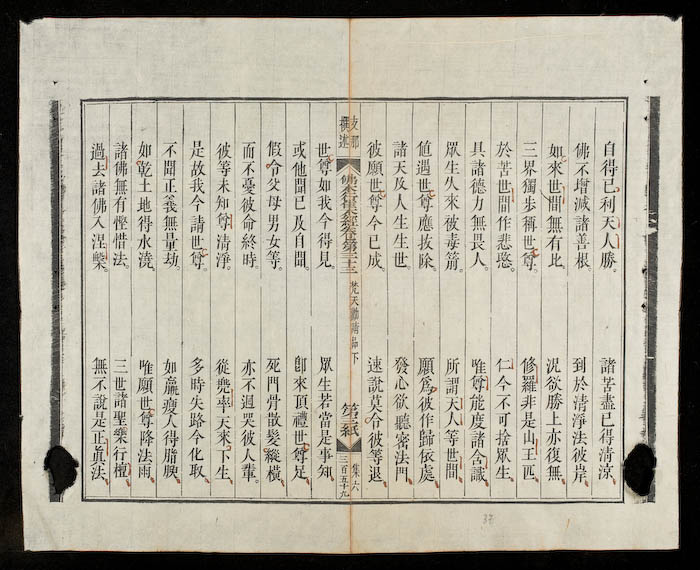 自得已利天人勝。　諸苦盡已得清涼。
佛不增減諸善根。　到於清淨法彼岸。
如來世間無有比　況欲勝上亦復無。
三界獨步稱世尊。　修羅非是山王匹。
於苦世間作悲愍。　仁今不可捨眾生。
具諸德力無畏人。　唯尊能度諸含識。
眾生久來被毒箭。　所謂天人等世間。
值遇世尊應拔除。　願為彼作歸依處。
諸天及人生生世。　發心欲聽密法門。
彼願世尊今已成。　速說莫令彼等退
支那撰述　佛本行集經卷第三十三　梵天勸請品下　第三紙　集六　三百五十九
世尊如我今得見　眾生若當是事知
或他聞已及自聞。　卽來頂禮世尊足
假令父母男女等。　死門骨散髮縱橫
而不憂彼命終時。　亦不迴哭彼人輩。
彼等未知尊清淨。　從兜率天來下生。
是故我今請世尊。　多時失路今化取。
不聞正義無量劫。　如羸瘦人得脂腴。
如乾土地得水澆。　唯願世尊降法雨
諸佛無有慳惜法。　三世諸聖樂行檀。
過去諸佛入涅槃。　無不說是正眞法。